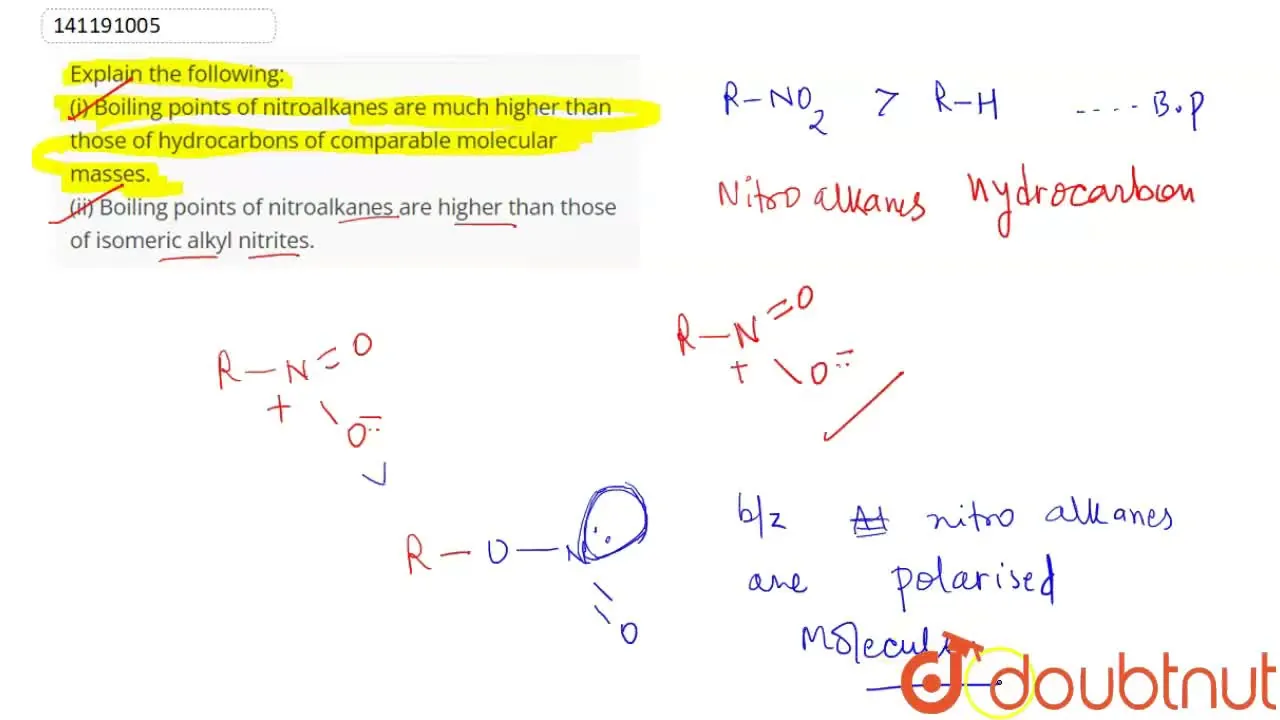 141191005
Explain the following:
(i) Boiling points of nitroalkanes are much higher than
those of hydrocarbons of comparable molecular
masses.
(ii) Boiling points of nitroalkanes are higher than those
of isomeric alkyl nitrites.
R-NO2 > R-H ....B.P
Nitro alkanes hydrocarbon
R-N=O
+
O-
R-N=O
+
O-
R-O-N
O
b/z nitro alkanes
are polarised
Molecules
doubtnut